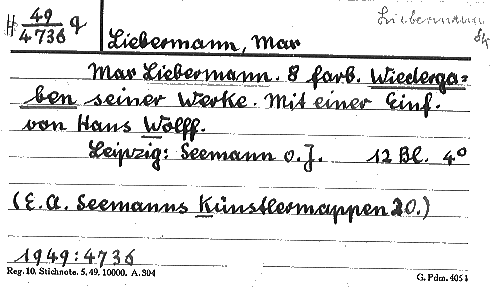 H 49/4736 q
Liebermann
Liebermann, Max
Max Liebermann. 8 farb. Wiederga=
ben seiner Werke. Mit einer Einf.
von Hans Wolff.
Leipzig: Seemann o.J. 12 Bl. 4°
(E.A. Seemanns Künstlermappen 20.)
1949:4736
Reg. 10. Stichnote. 5. 49. 10000. A. 304 G. Pdm. 405